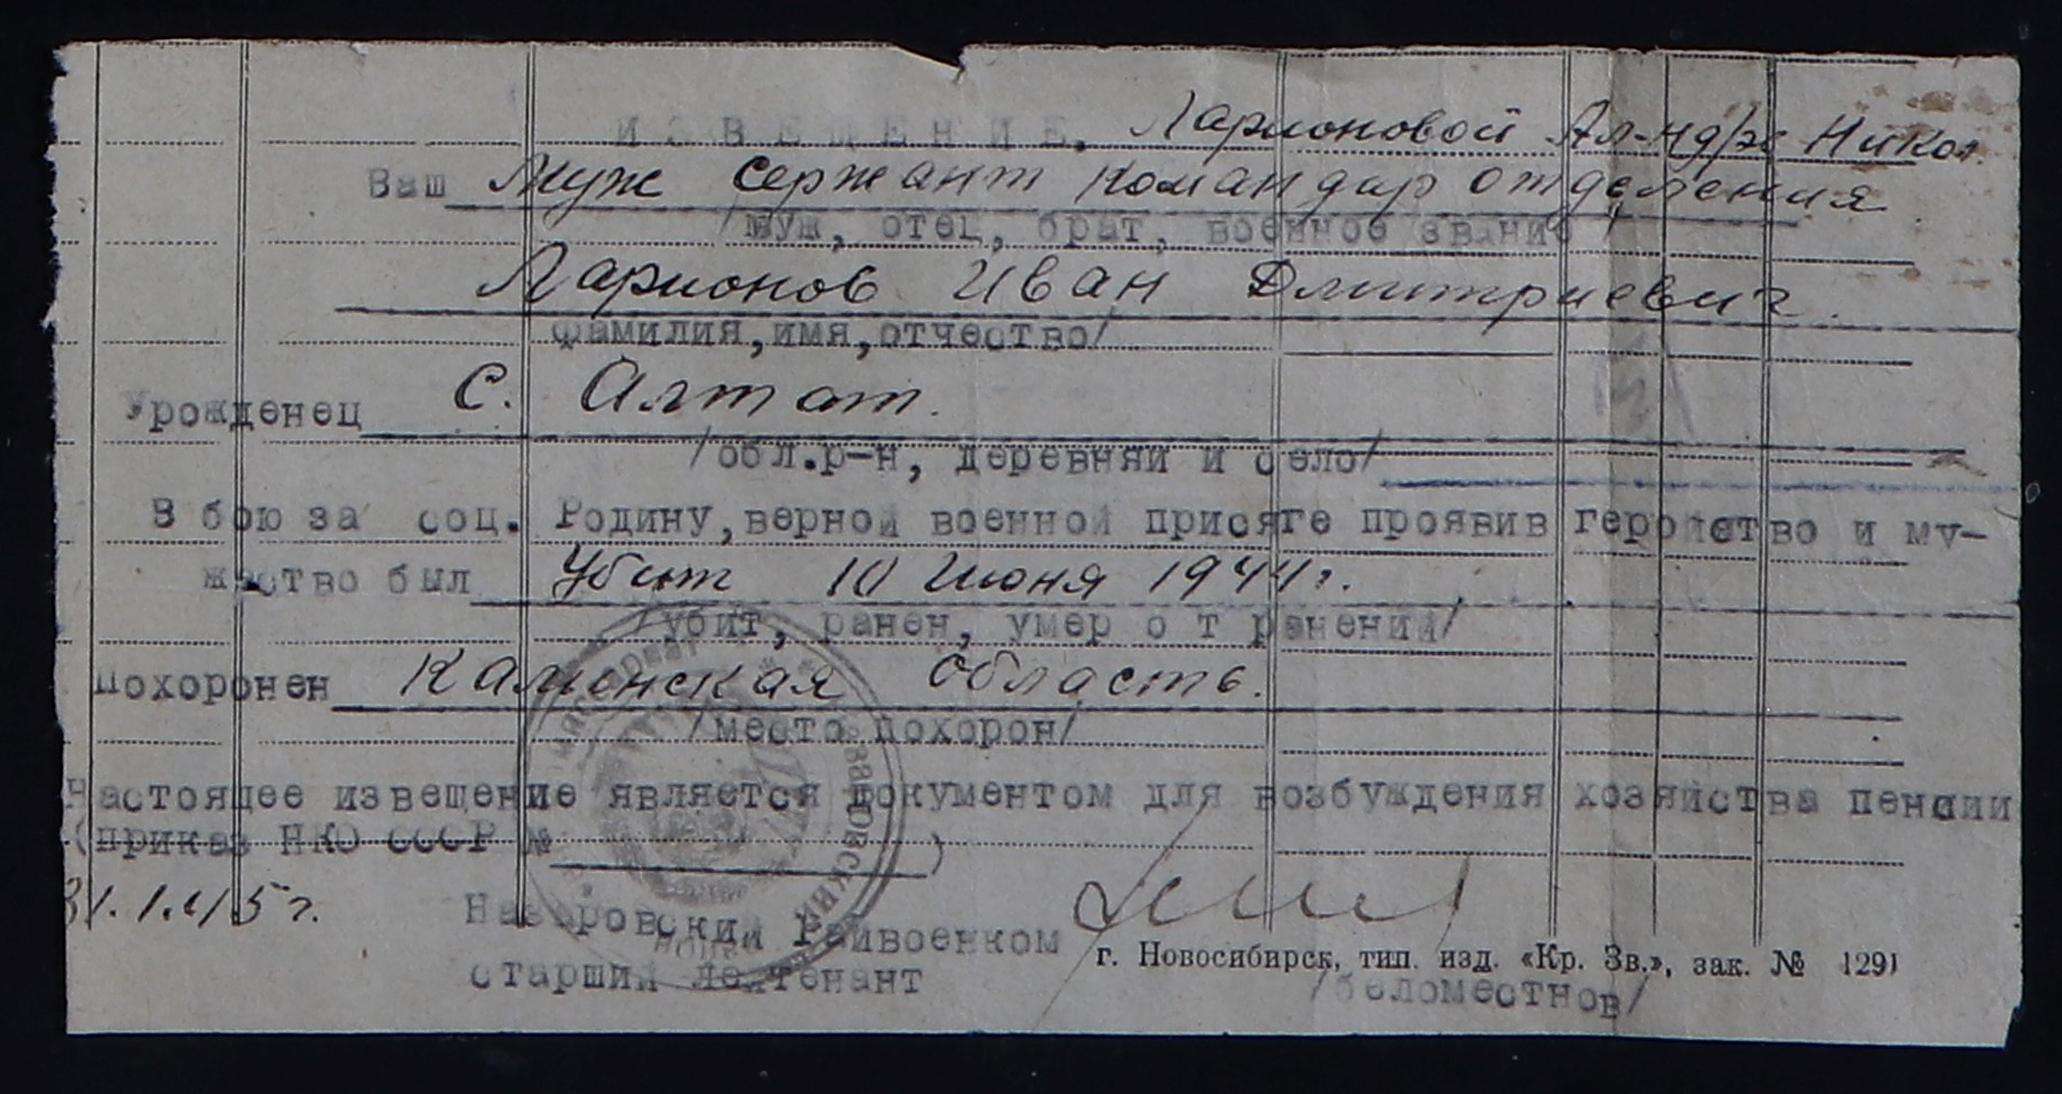 ИЗВЕЩЕНИЕ. Ларионовой Ал-ндре Никол.
Ваш муж сержант командир отделения
/муж, отец, брат, военное звание/
Ларионов Иван Дмитриевич
фамилия,имя,отчество/
Урожденец С. Алтат.
/обл.р-н, деревняи и село/
В бою за соц. Родину,верной военной присяге проявив геройство и му-
жество был Убит 10 Июня 1944г.
/убит, ранен, умер о т ранений/
Похоронен Калинская область.
/место похорон/
Настоящее извещение является документом для возбуждения хозяйства пенсии
(приказ НКО СССР № )
31.1.45 г.
Назаровский Райвоенком
г. Новосибирск, тип. изд. «Кр. Зв.», зак. № 1291
старший лейтенант /беломестнов/